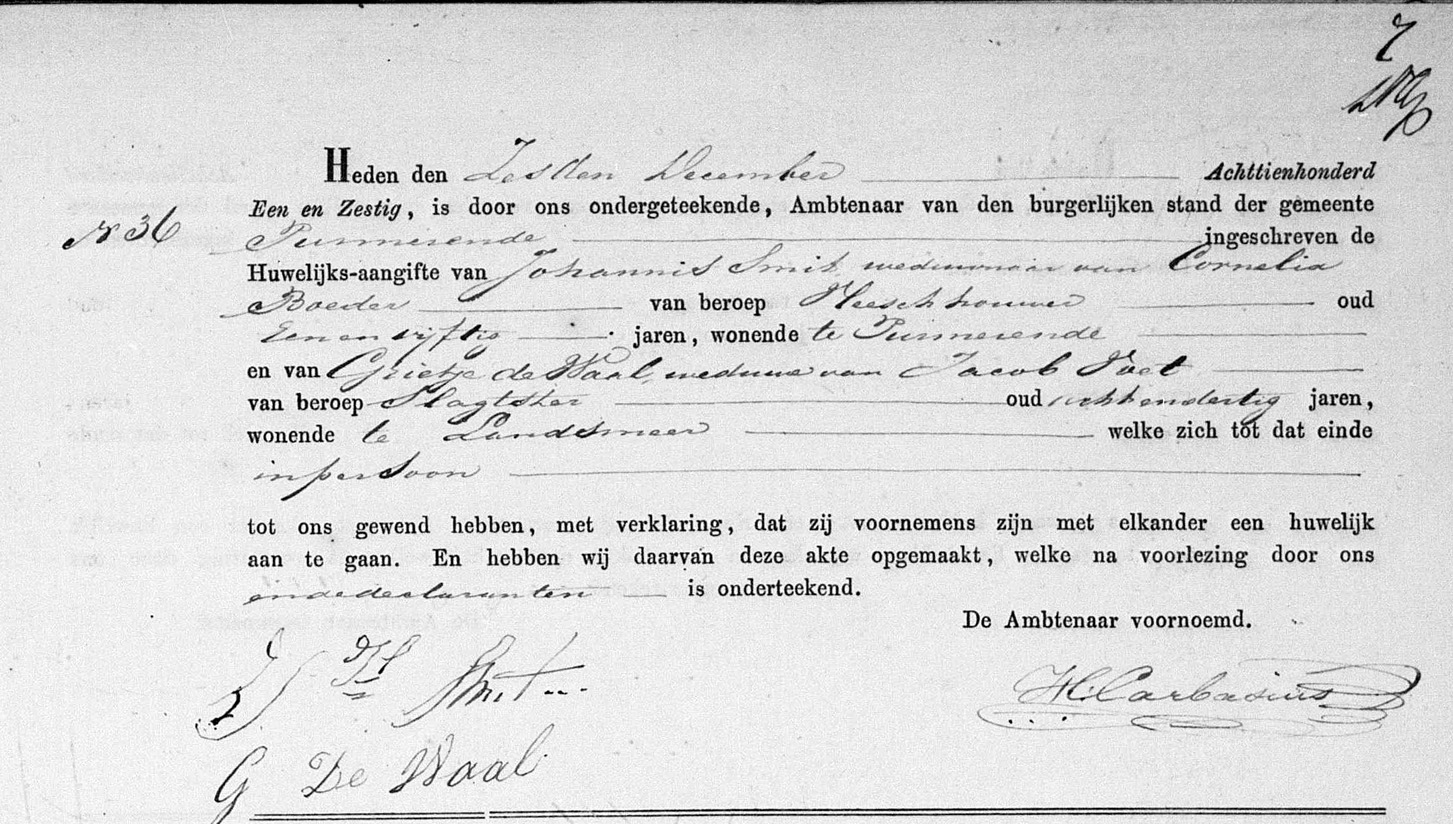 7
Heden den Zesden December Achttienhonderd
No 36
Een en Zestig, is door ons ondergeteekende, Ambtenaar van den burgerlijken stand der gemeente
Purmerende ingeschreven de
Huwelijks-aangifte van Johannis Smit weduwnaar van Cornelia
Boeder van beroep Vleeschhouwer oud
Eenenvijftig jaren, wonende te Purmerende
en van Grietje de Waal, weduwe van Jacob Voet
van beroep Slagtster oud achtendertig jaren,
wonende te Landsmeer welke zich tot dat einde
in persoon
tot ons gewend hebben, met verklaring, dat zij voornemens zijn met elkander een huwelijk
aan te gaan. En hebben wij daarvan deze akte opgemaakt, welke na voorlezing door ons
en de declaranten is onderteekend.
De Ambtenaar voornoemd.
Smit
H. Carbasius
G De Waal